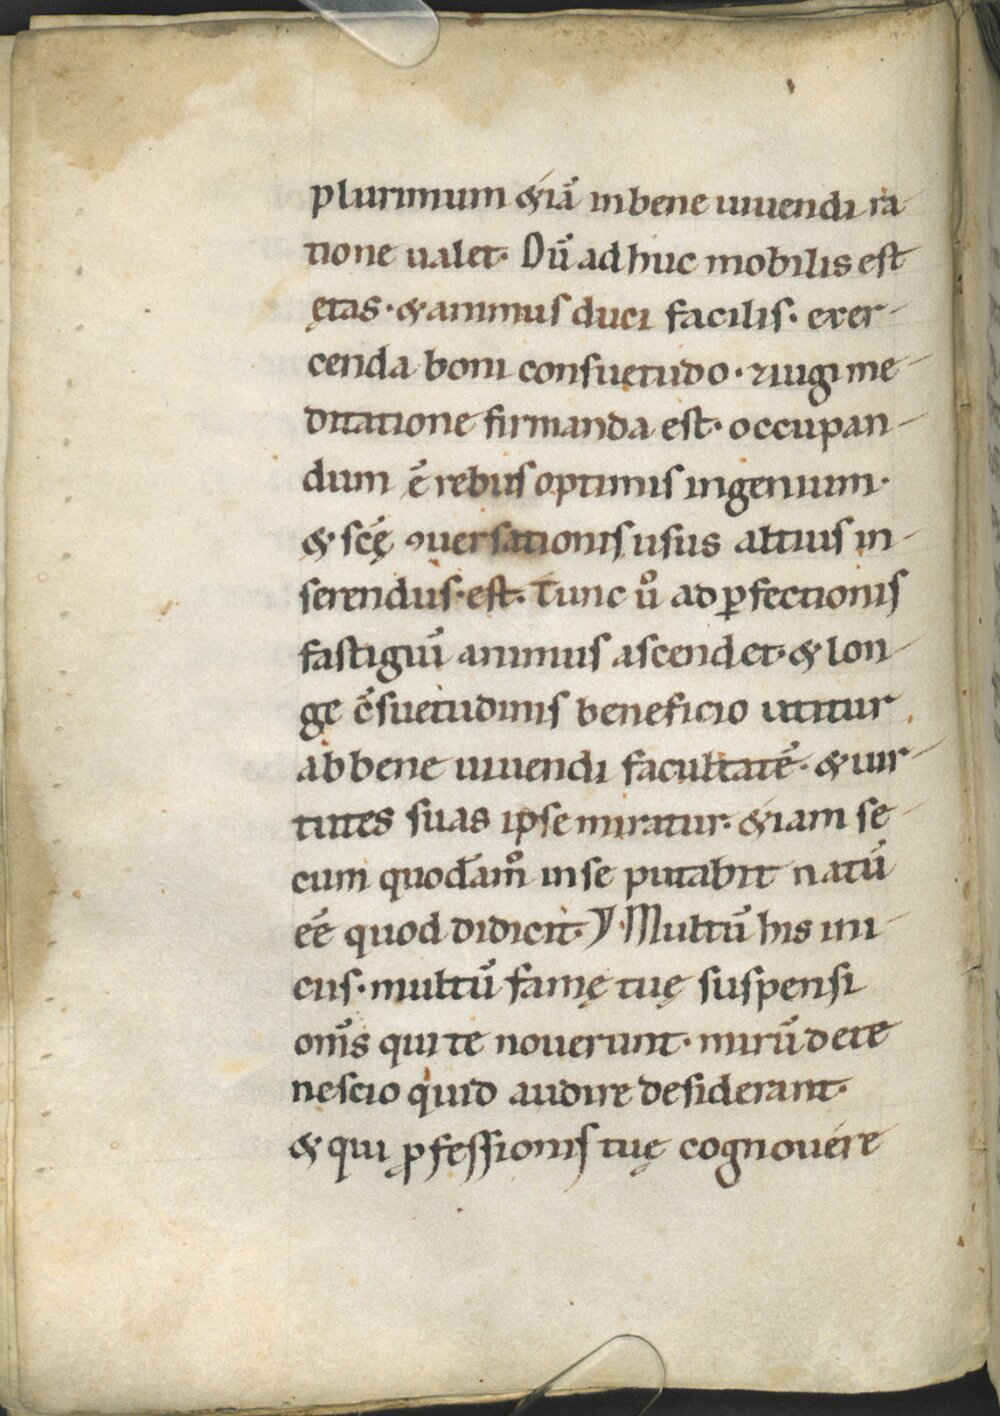 plurimum &iā in bene uiuendi ra
tione ualet. Dū ad huc mobilis est
ętas. & animus duci facilis. exer-
cenda boni consuetudo. ⁊ iugi me-
ditatione firmanda est. occupan-
dum ē rebus optimis ingenium.
& scę̄ ꝯuersationis usus altius in-
serendus. est. Tunc ůo ad ꝑfectionis
fastigiū animus ascendet. & lon-
ge c̄suetudinis beneficio utitur
ab bene uiuendi facultatē. & uir-
tutes suas ipse miratur. &iam se-
cum quodāmo inse putabit natū
eē quod didicit. Y Multū his ini-
cus. multū famę tuę suspensi
omīs qui te nouerunt. mirū de te
nescio quid audire desiderant.
& qui ꝓfessionis tuę cognouere